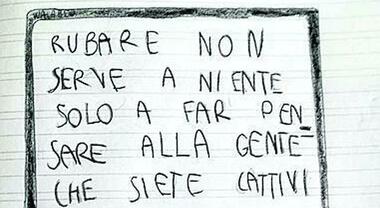 RUBARE NON
SERVE A NIENTE
SOLO A FAR PEN_
SARE ALLA GENTE
CHE SIETE CATTIVI